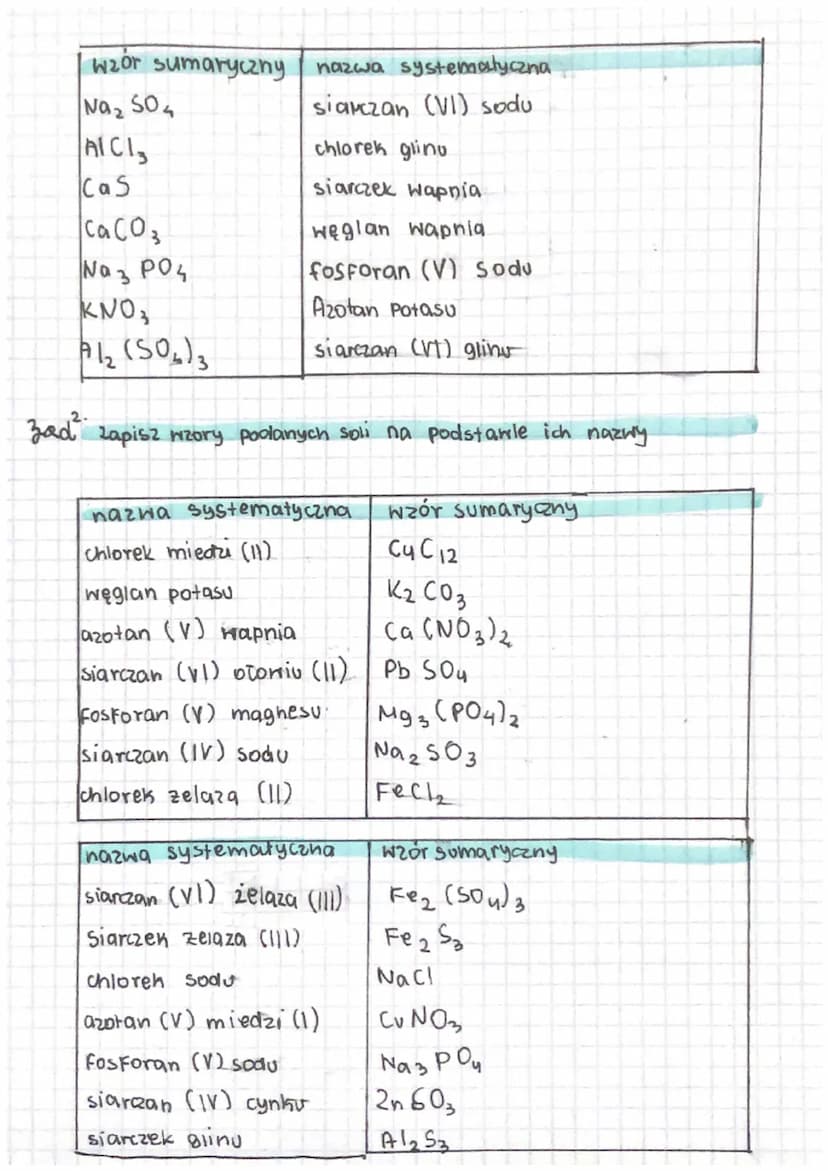 wzór sumaryczny nazwa systematyczna
Na₂SO₄ siarczan (VI) sodu
AlCl₃ chlorek glinu
CaS siarczek wapnia
CaCO₃ węglan wapnia
Na₃PO₄ fosforan (V) sodu
KNO₃ Azotan potasu
Al₂(SO₄)₃ siarczan (VI) glinu
zad 2. zapisz wzory podanych soli na podstawie ich nazwy
nazwa systematyczna wzór sumaryczny
chlorek miedzi (II) CuCl₂
węglan potasu K₂CO₃
azotan (V) wapnia Ca(NO₃)₂
siarczan (VI) ołowiu (II) PbSO₄
fosforan (V) magnesu Mg₃(PO₄)₂
siarczan (IV) sodu Na₂SO₃
chlorek zelaza (II) FeCl₂
nazwa systematyczna wzór sumaryczny
siarczan (VI) żelaza (III) Fe₂(SO₄)₃
Siarczek zelaza (III) Fe₂S₃
chlorek sodu NaCl
azotan (V) miedzi (I) CuNO₃
fosforan (V) sodu Na₃PO₄
siarczan (IV) cynku ZnSO₃
siarczek glinu Al₂S₃